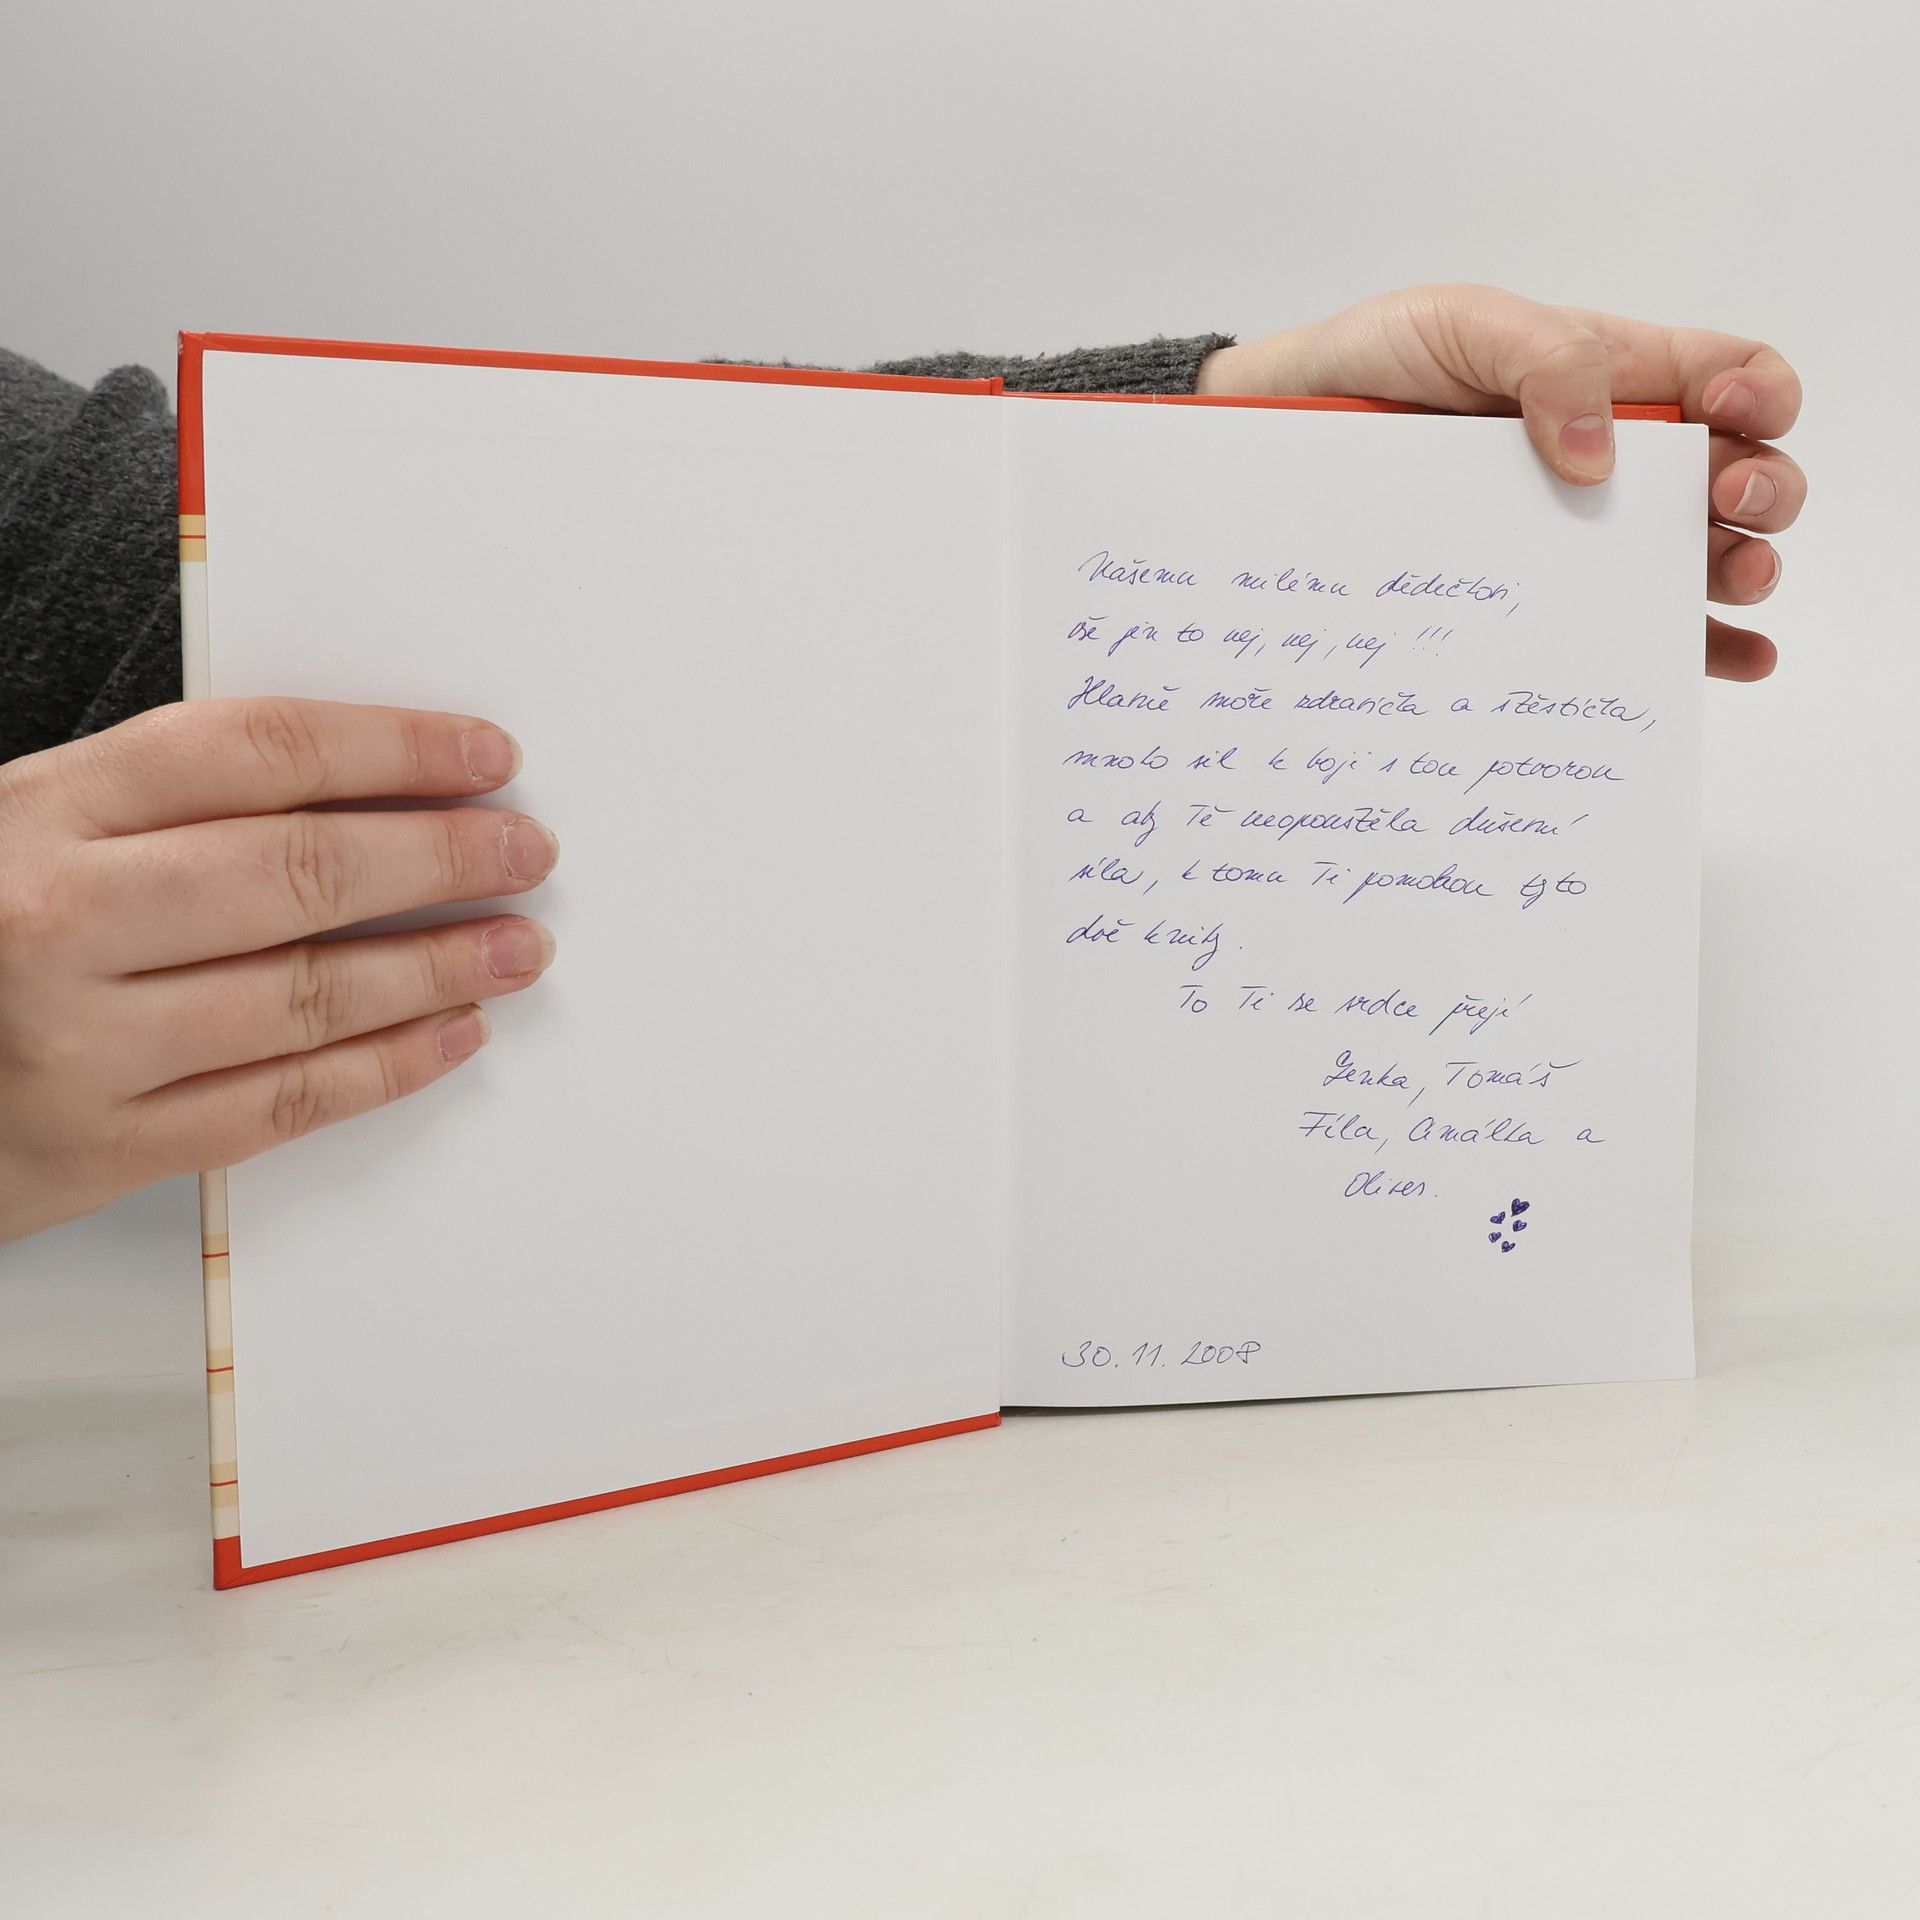 Našemu milému dědečkovi,
vše jen to nej, nej, nej !!!
Hlavně moře zdravíčka a štěstíčka,
mnoho sil k boji s tou potvorou
a aby Tě neopouštěla duševní
síla, k tomu Ti pomohou tyto
dvě knihy.
To Ti ze srdce přejí
Lenka, Tomáš
Fíla, Amálka a
Oliver.
30. 11. 2008